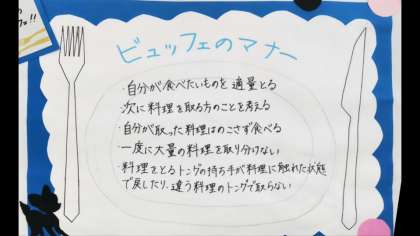 フェ!!
ビュッフェのマナー
・自分が食べたいものを適量とる
・次に料理を取る方のことを考える
・自分が取った料理はのこさず食べる
・一度に大量の料理を取り分けない
・料理をとるトングの持ち手が料理に触れた状態
で戻したり、違う料理のトングで取らない